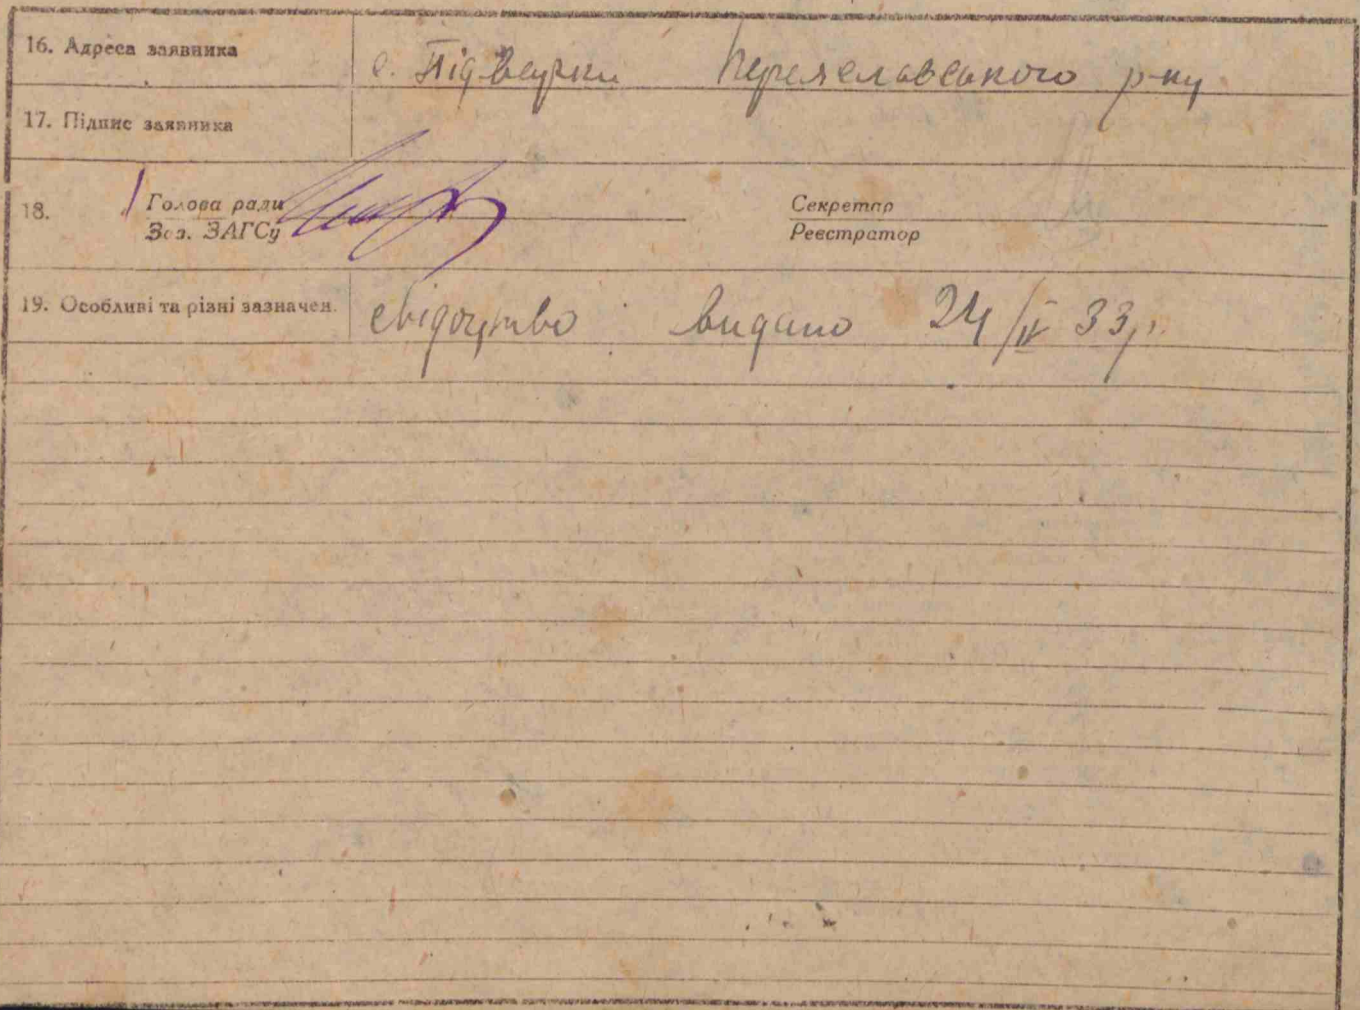 16. Адреса заявника с. Підварки Переяславського р-ну
17. Підпис заявника
18. Голова ради Секретар
Зав. ЗАГСу Реєстратор
19. Особливі та різні зазначен. свідоцтво видано 24/IV 33 р.